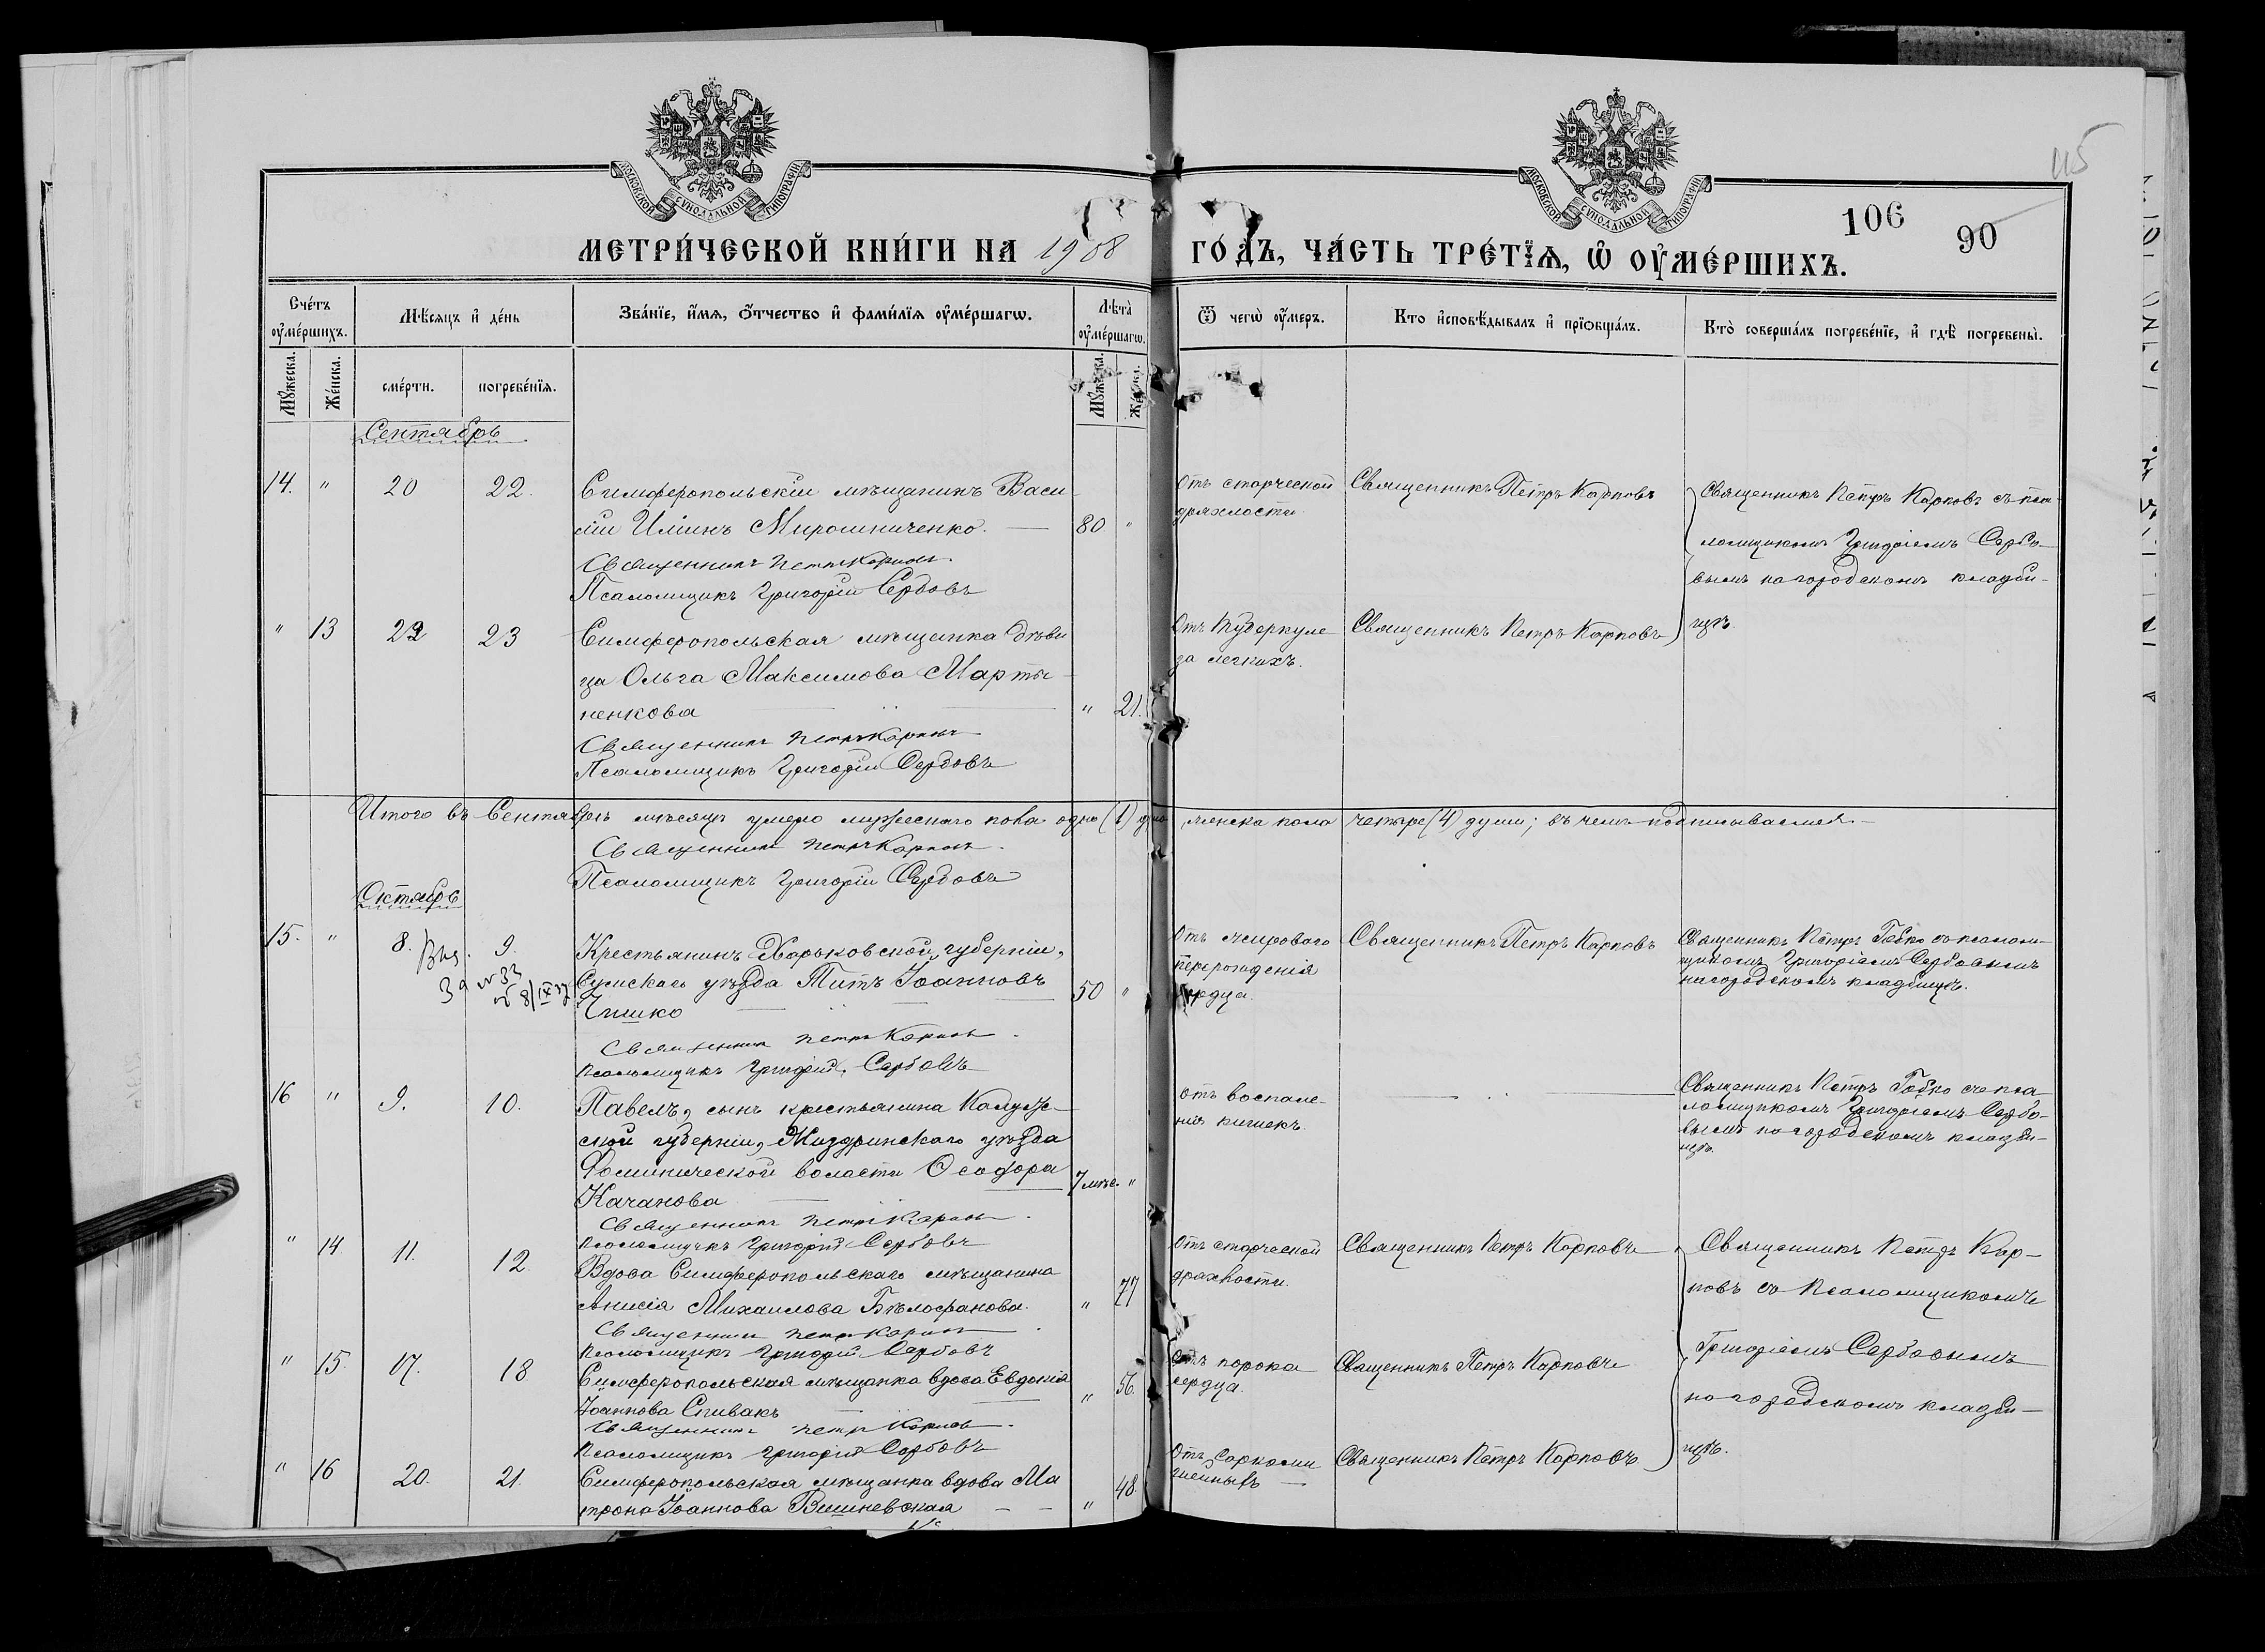 115
106
90
МОСКОВСКОЙ СѴНОДАЛЬНОЙ ТИПОГРАФІИ
МОСКОВСКОЙ СѴНОДАЛЬНОЙ ТИПОГРАФІИ
МЕТРИ́ЧЕСКОЙ КНИ́ГИ НА 1908 ГО́ДЪ, ЧА́СТЬ ТРЕ́ТЇѦ, Ѡ҆ ОУ҆МЕ́РШИХЪ.
Сче́тъ оу҆ме́ршихъ.
Мꙋ́жеска.
Же́нска.
Мѣ́сяцъ и҆ де́нь
сме́рти.
погребе́нїя.
Зва́нїе, и҆́мя, ѻ҆́тчество и҆ фами́лїя оу҆ме́ршагѡ.
Лѣта̀ оу҆ме́ршагѡ.
Мꙋ́жеска.
Же́нска.
Ѿ чегѡ̀ оу҆́меръ.
Кто̀ и҆сповѣ́дывалъ и҆ прїѻбща́лъ.
Кто̀ соверша́лъ погребе́нїе, и҆ гдѣ̀ погребены̀.
Сентябрь
14. " 20 22. Симферопольскій мѣщанинъ Васи-
лій Иліинъ Мирошниченко. — 80 "
Священникъ Петръ Карповъ.
Псаломщикъ Григорій Сербовъ
Отъ старческой
дряхлости.
Священникъ Петръ Карповъ
Священникъ Петръ Карповъ съ пса-
ломщикомъ Григоріемъ Сербо-
вымъ на городскомъ кладби-
щѣ.
" 13 22 23 Симферопольская мѣщанка дѣви
ца Ольга Максимова Марты-
ненкова " 21.
Священникъ Петръ Карповъ
Псаломщикъ Григорій Сербовъ
Отъ туберкуле
за легкихъ.
Священникъ Петръ Карповъ
Итого въ Сентябрѣ мѣсяцѣ умеро мужескаго пола одна (1) душа, женска пола четыре (4) души; въ чемъ подписываемся. —
Священникъ Петръ Карповъ.
Псаломщикъ Григорій Сербовъ
Октябрь
15. " 8. 9. Крестьянинъ Харьковской губерніи,
Сумскаго уѣзда Титъ Іоанновъ 50 "
Чишко
За №33
Священникъ Петръ Карповъ.
Псаломщикъ Григорій Сербовъ
Отъ жирового
перерожденія
сердца.
Священникъ Петръ Карповъ
Священникъ Петръ Гобко съ псалом-
щикомъ Григоріемъ Сербовымъ
на городскомъ кладбищѣ.
16 " 9. 10. Павелъ, сынъ крестьянина Калуж-
ской губерніи, Жиздринскаго уѣзда
волости Ѳеодора 7 мѣс. "
Качанова
Священникъ Петръ Карповъ.
Псаломщикъ Григорій Сербовъ
отъ воспале-
нія кишекъ.
Священникъ Петръ Гобко съ пса-
ломщикомъ Григоріемъ Сербо-
вымъ на городскомъ кладби-
щѣ.
" 14 11. 12. Вдова Симферопольскаго мѣщанина
Анисія Михаилова Бѣлофанова. " 77
Священникъ Петръ Карповъ.
Псаломщикъ Григорій Сербовъ
Отъ старческой
дряхлости.
Священникъ Петръ Карповъ
Священникъ Петръ Кар-
повъ съ Псаломщикомъ
Григоріемъ Сербовымъ
на городскомъ кладби-
щѣ.
" 15. 17. 18 Симферопольская мѣщанка вдова Евдокія
Іоаннова Спивакъ " 56.
Священникъ Петръ Карповъ.
Псаломщикъ Григорій Сербовъ
Отъ порока
сердца.
Священникъ Петръ Карповъ
" 16 20. 21. Симферопольская мѣщанка вдова Ма
трона Іоаннова Вишневская — — " 48.
Отъ саркомы
Священникъ Петръ Карповъ